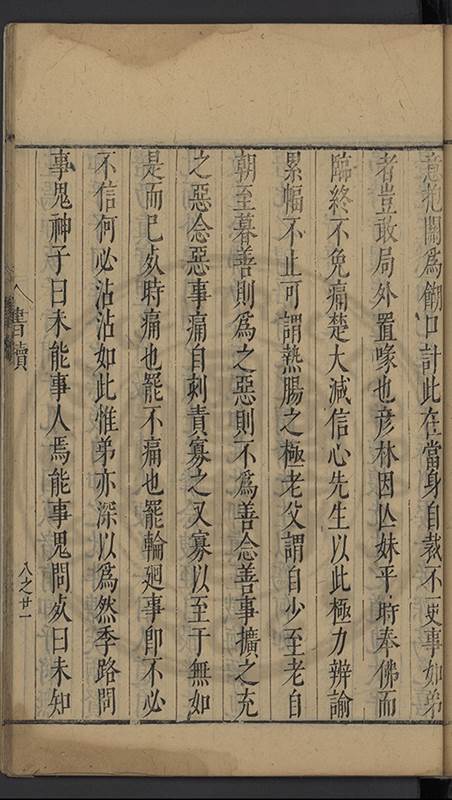 意抱關爲餬口計此在當身自裁不更事如弟
者豈敢局外置喙也彦林因亾妹平時奉佛而
臨終不免痛楚大減信心先生以此極力辨諭
累幅不止可謂熱腸之極老父謂自少至老自
朝至暮善則爲之惡則不爲善念善事擴之充
之惡念惡事痛自刺責寡之又寡以至于無如
是而巳𣦸時痛也罷不痛也罷輪廻事卽不必
不信何必沾沾如此惟弟亦深以爲然季路問
事鬼神子曰未能事人焉能事鬼問𣦸曰未知
書牘
八之廿一